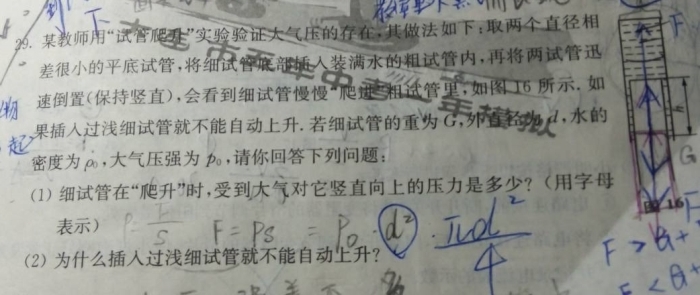 下
29. 某教师用“试管爬升”实验验证大气压的存在,其做法如下:取两个直径相
差很小的平底试管,将细试管底部插入装满水的粗试管内,再将两试管迅
速倒置(保持竖直),会看到细试管慢慢“爬进”粗试管里,如图 16 所示. 如
果插入过浅细试管就不能自动上升. 若细试管的重为 G,外直径为 d,水的
密度为 ρ₀,大气压强为 p₀,请你回答下列问题:
(1) 细试管在“爬升”时,受到大气对它竖直向上的压力是多少? (用字母
表示) F = PS = P₀ · πd²/4
(2) 为什么插入过浅细试管就不能自动上升?
F
G
图 16
F > G+
F < G+